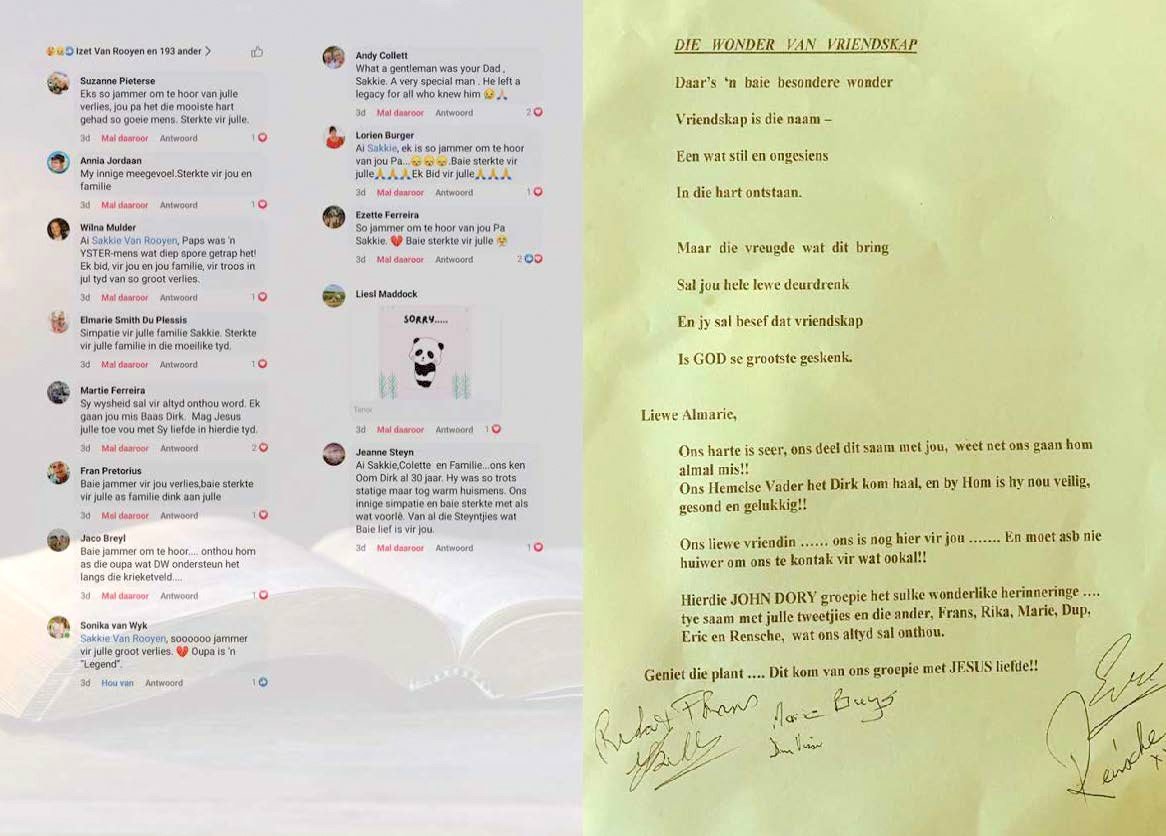 Izet Van Rooyen en 193 ander >
Suzanne Pieterse
Eks so jammer om te hoor van julle
verlies, jou pa het die mooiste hart
gehad so goeie mens. Sterkte vir julle.
3d Mal daaroor Antwoord 1
Annia Jordaan
My innige meegevoel.Sterkte vir jou en
familie
3d Mal daaroor Antwoord 1
Wilna Mulder
Ai Sakkie Van Rooyen, Paps was 'n
YSTER-mens wat diep spore getrap het!
Ek bid, vir jou en jou familie, vir troos in
jul tyd van so groot verlies.
3d Mal daaroor Antwoord 1
Elmarie Smith Du Plessis
Simpatie vir julle familie Sakkie. Sterkte
vir julle familie in die moeilike tyd.
3d Mal daaroor Antwoord 1
Martie Ferreira
Sy wysheid sal vir altyd onthou word. Ek
gaan jou mis Baas Dirk. Mag Jesus
julle toe vou met Sy liefde in hierdie tyd.
3d Mal daaroor Antwoord 2
Fran Pretorius
Baie jammer vir jou verlies,baie sterkte
vir julle as familie dink aan julle
3d Mal daaroor Antwoord 1
Jaco Breyl
Baie jammer om te hoor.... onthou hom
as die oupa wat DW ondersteun het
langs die krieketveld....
3d Mal daaroor Antwoord 1
Sonika van Wyk
Sakkie Van Rooyen, soooooo jammer
vir julle groot verlies. 💔 Oupa is 'n
"Legend".
3d Hou van Antwoord 1
Andy Collett
What a gentleman was your Dad ,
Sakkie. A very special man . He left a
legacy for all who knew him 😢🙏
3d Mal daaroor Antwoord 2
Lorien Burger
Ai Sakkie, ek is so jammer om te hoor
van jou Pa...😭😭😭.Baie sterkte vir
julle🙏🙏🙏Ek Bid vir julle🙏🙏🙏
3d Mal daaroor Antwoord 1
Ezette Ferreira
So jammer om te hoor van jou Pa
Sakkie. 💔 Baie sterkte vir julle 😢
3d Mal daaroor Antwoord 2
Liesl Maddock
SORRY.....
Tenor
3d Mal daaroor Antwoord 1
Jeanne Steyn
Ai Sakkie,Colette en Familie...ons ken
Oom Dirk al 30 jaar. Hy was so trots
statige maar tog warm huismens. Ons
innige simpatie en baie sterkte met als
wat voorlê. Van al die Steyntjies wat
Baie lief is vir jou.
3d Mal daaroor Antwoord 1
DIE WONDER VAN VRIENDSKAP
Daar's 'n baie besondere wonder
Vriendskap is die naam –
Een wat stil en ongesiens
In die hart ontstaan.
Maar die vreugde wat dit bring
Sal jou hele lewe deurdrenk
En jy sal besef dat vriendskap
Is GOD se grootste geskenk.
Liewe Almarie,
Ons harte is seer, ons deel dit saam met jou, weet net ons gaan hom
almal mis!!
Ons Hemelse Vader het Dirk kom haal, en by Hom is hy nou veilig,
gesond en gelukkig!!
Ons liewe vriendin ...... ons is nog hier vir jou ....... En moet asb nie
huiwer om ons te kontak vir wat ookal!!
Hierdie JOHN DORY groepie het sulke wonderlike herinneringe ....
tye saam met julle tweetjies en die ander, Frans, Rika, Marie, Dup,
Eric en Rensche, wat ons altyd sal onthou.
Geniet die plant .... Dit kom van ons groepie met JESUS liefde!!
Frans
Buys
Rensche